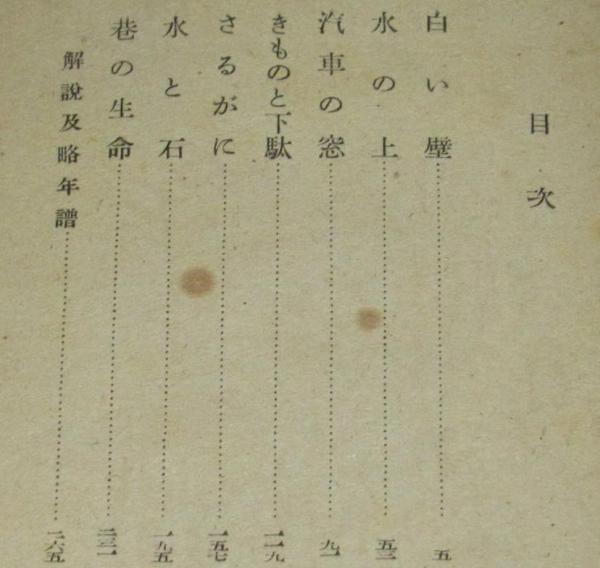 目次
白い壁……………………五
水の上……………………五三
汽車の窓……………………九一
きものと下駄……………………一一九
さるがに……………………一五七
水と石……………………一九五
巷の生命……………………二三一
解說及略年譜……………………二六五